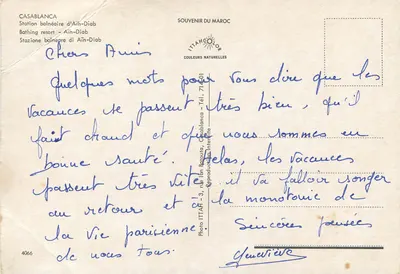 CASABLANCA
Station balnéaire d'Aïn-Diab
Bathing resort - Aïn-Diab
Stazione balneare di Aïn-Diab
SOUVENIR DU MAROC
ITTAHCOLOR
COULEURS NATURELLES
Chers Amis
Quelques mots pour vous dire que les
vacances se passent très bien, qu'il
fait chaud et que nous sommes en
bonne santé. Hélas, les vacances
passent très vite, il va falloir songer
au retour et à la monotonie de
la vie parisienne
de nous tous.
Sincères pensées
Geneviève
Photo ITTAH - 3, Casablanca - Tél.
4066